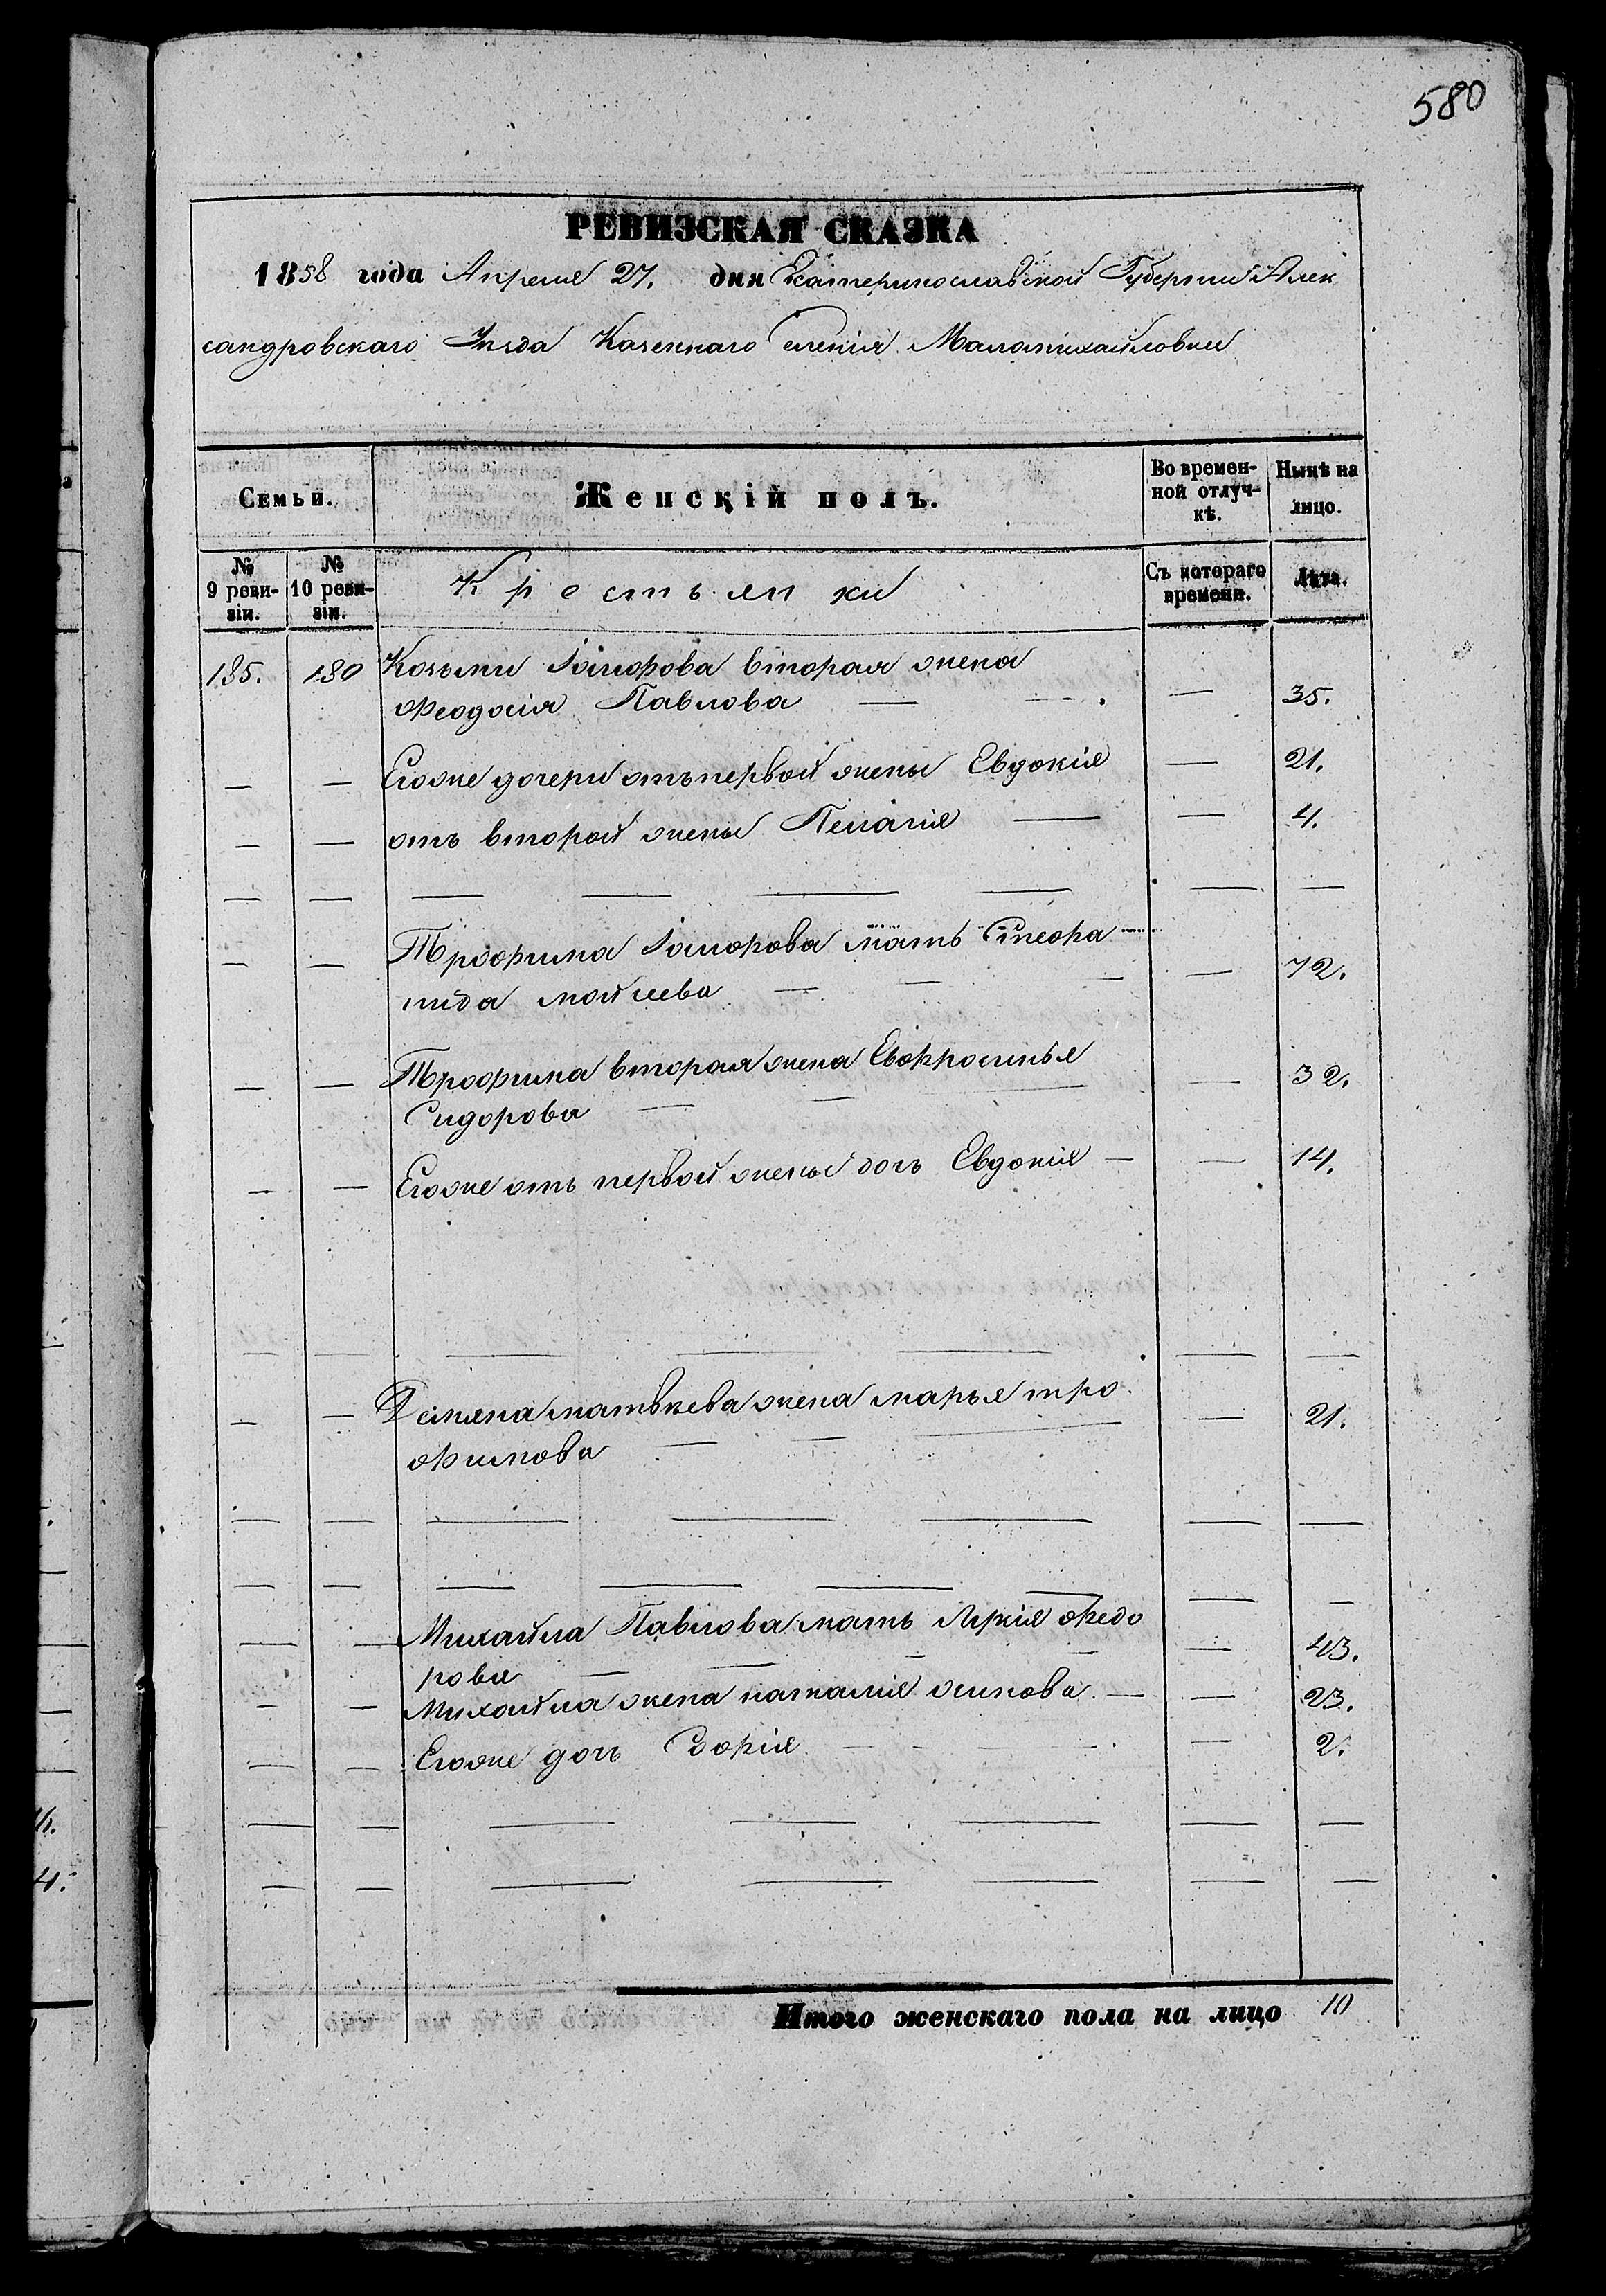 580
РЕВИЗСКАЯ СКАЗКА
1858 года Апреля 27. дня Екатеринославской Губернии Алек
сандровского Уѣзда Казеннаго Селенія Маломихайловки
Семьи.
Женскій полъ.
Во времен-
ной отлуч-
кѣ.
Нынѣ на
лицо.
№
9 реви-
зіи.
№
10 реви-
зіи.
Крестьянки
Съ котораго
времени.
Лѣта.
185. 180 Козьмы вторая жена
Феодосія Павлова — — . — 35.
— — Егоже дочери отъ первой жены Евдокія — 21.
— — отъ второй жены Пелагія — — 4.
— — — — — — — —
— — Трофима мать Стефа
нида Мойсеева — — — — 72.
— — Трофима вторая жена Евфросинья — 32.
Сидорова — —
— — Егоже отъ первой жены дочь Евдокія — — 14.
— — — — — — —
— — матвѣева жена марья тро — 21.
фимова — — —
— — — — — — —
— — — — — — — —
— — Михайла Павлова мать Федо — 43.
рова — — — —
— — Михайла жена наталія осипова — — 23.
— — Егоже дочь Софія — — 2.
— — — — — — —
— — — — — — —
Итого женскаго пола на лицо 10
4.